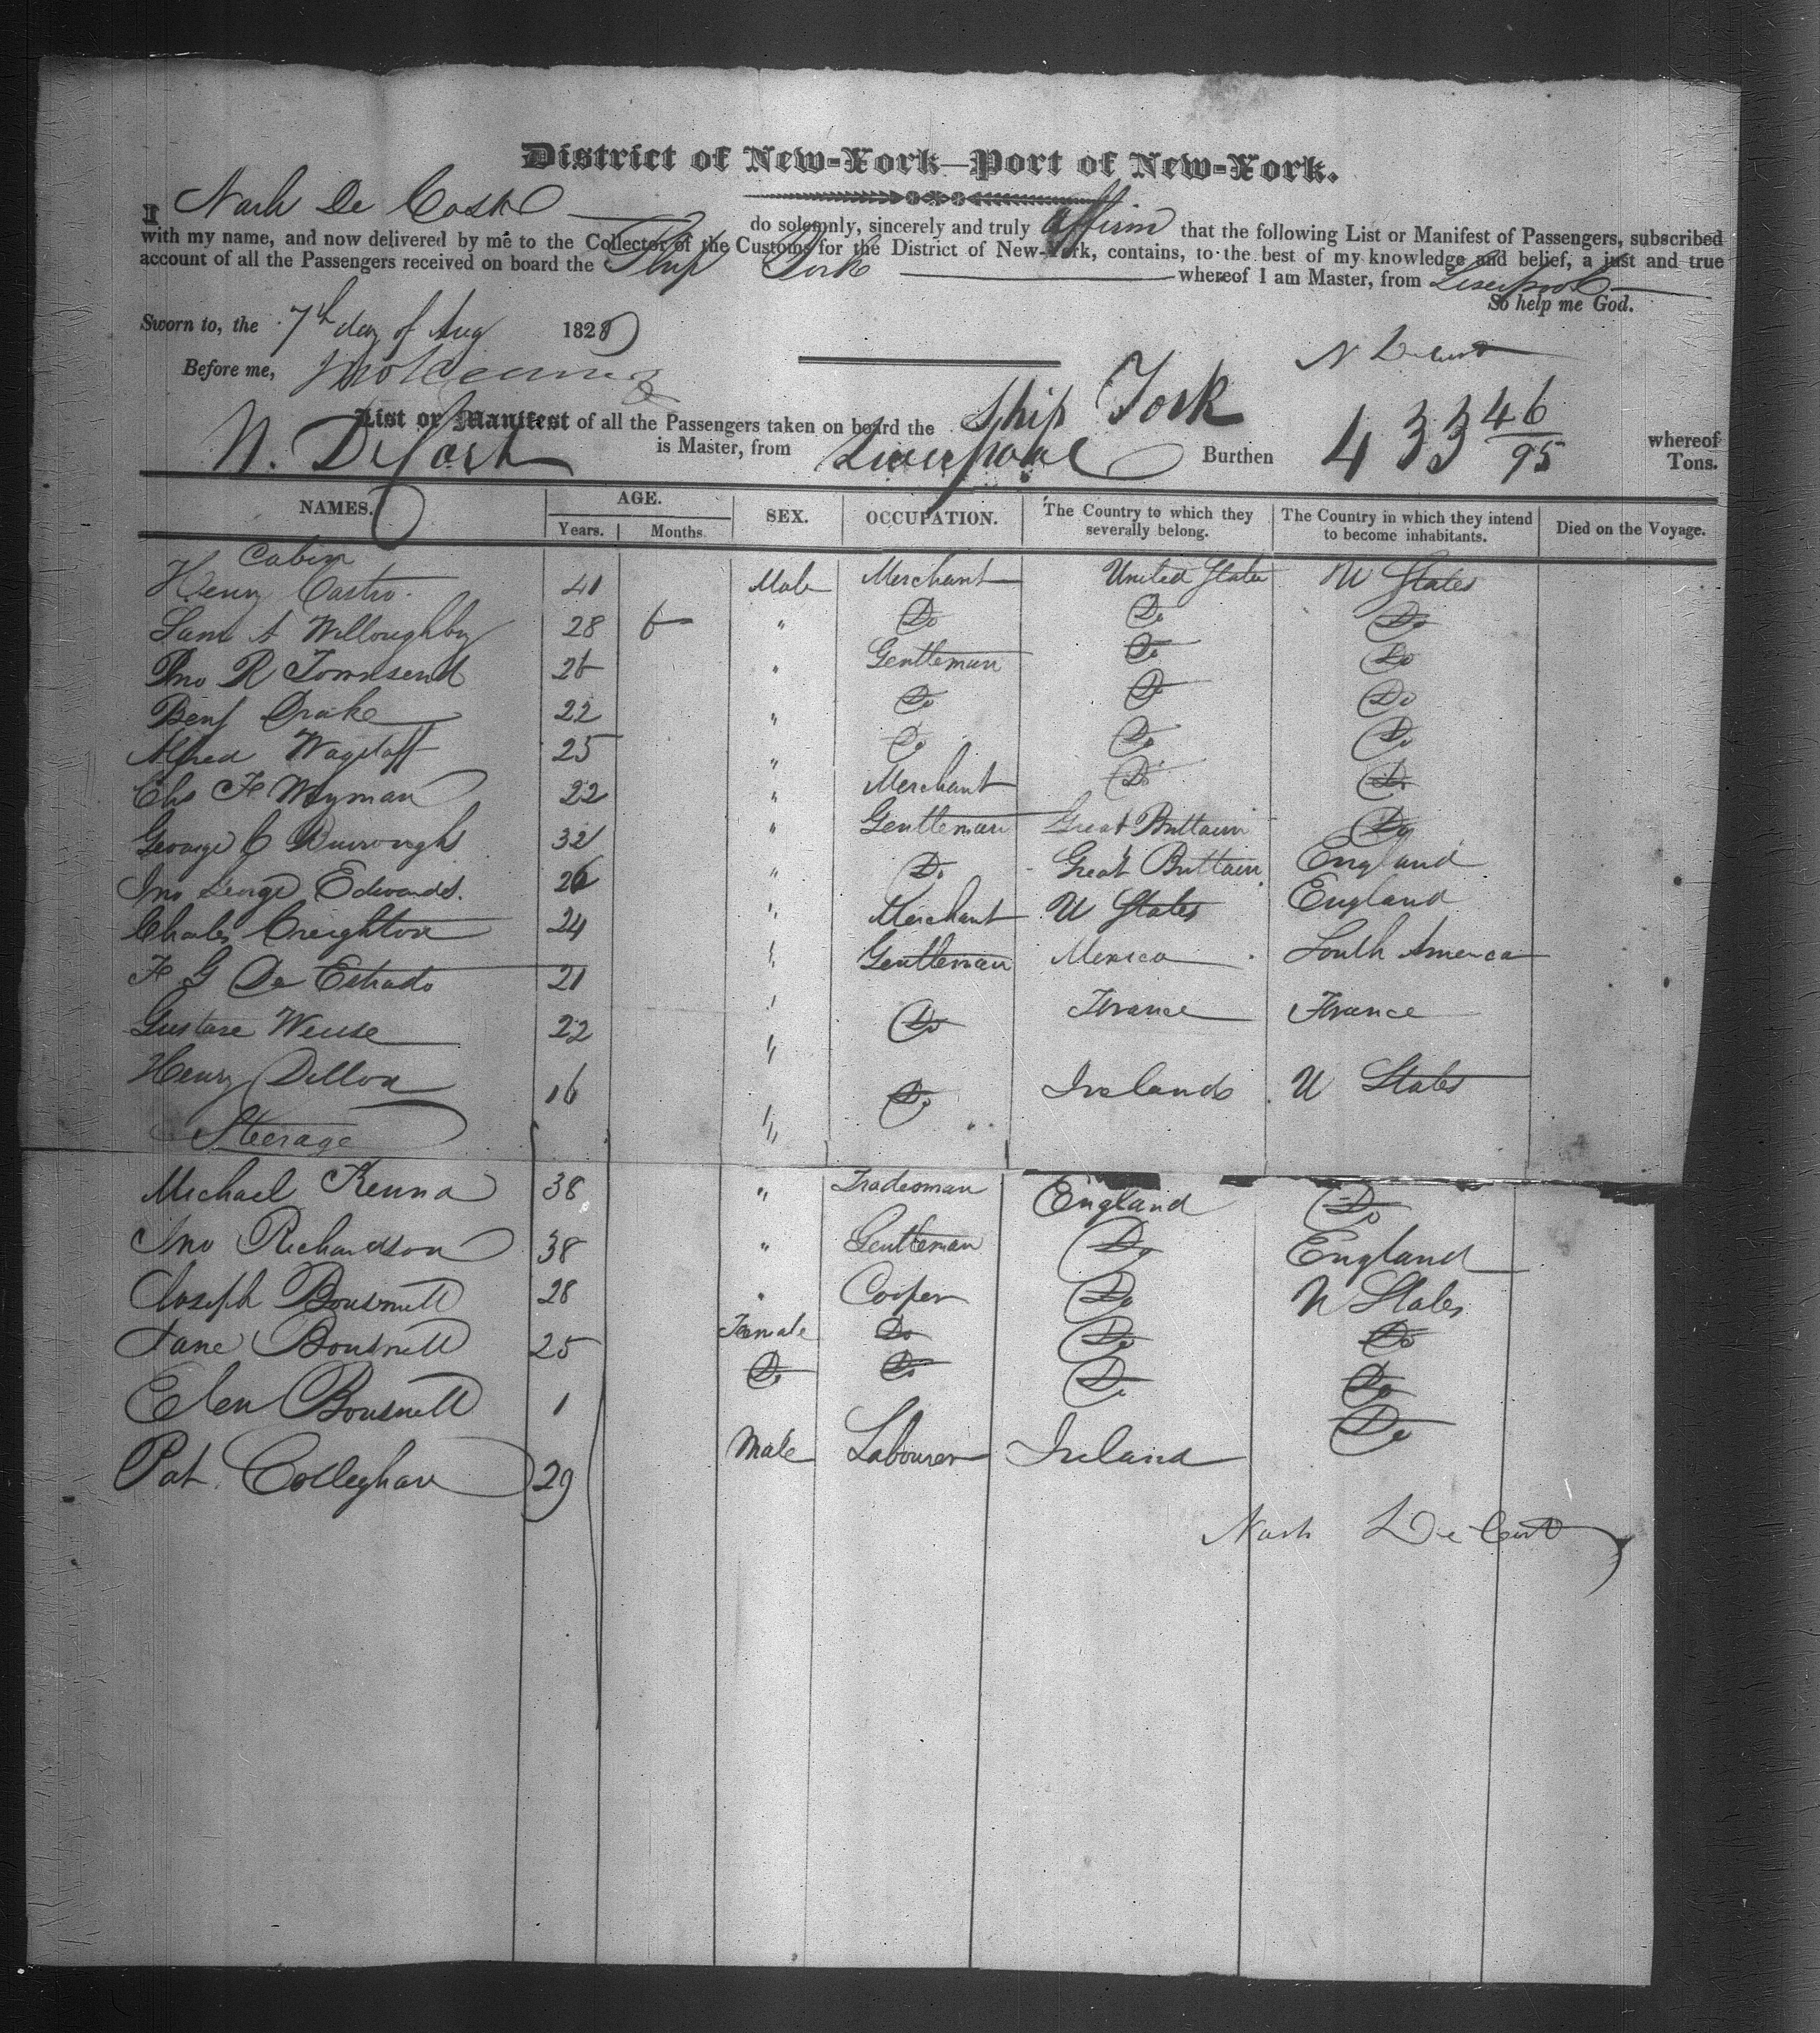 District of New-York—Port of New-York.
I Nash De Cost do solemnly, sincerely and truly affirm that the following List or Manifest of Passengers, subscribed
with my name, and now delivered by me to the Collector of the Customs for the District of New-York, contains, to the best of my knowledge and belief, a just and true
account of all the Passengers received on board the Ship York whereof I am Master, from Liverpool
So help me God.
Sworn to, the 7th day of Aug 1828
N DeCost
Before me,
List or Manifest of all the Passengers taken on board the Ship York whereof
N. DeCost is Master, from Liverpool Burthen 433 46/95 Tons.
NAMES. AGE. SEX. OCCUPATION. The Country to which they severally belong. The Country in which they intend to become inhabitants. Died on the Voyage.
Years. Months.
Cabin
Henry Castro 41 Male Merchant United States U States
Saml A Willoughby 28 6 " Do Do Do
Jno R Townsend 26 " Gentleman Do Do
Benj Drake 22 " Do Do Do
Alfred Wagstaff 25 " Do Do Do
Chs F Wyman 22 " Merchant Do Do
George C Burroughs 32 " Gentleman Great Brittain Do
Jno George Edwards. 26 " Do Great Brittain England
Charles Creighton 24 " Merchant U States England
F G De Estrado 21 " Gentleman Mexico South America
Gustave 22 " Do France France
Henry Dillon 16 " Do Ireland U States
Steerage
Michael Kenna 38 " Tradesman England Do
Jno Richardson 38 " Gentleman Do England
Joseph Bousnell 28 " Cooper Do U States
Jane Bousnell 25 Female Do Do Do
Elen Bousnell 1 Do Do Do Do
Pat Colleghan 29 Male Labourer Ireland Do
Nash De Cost